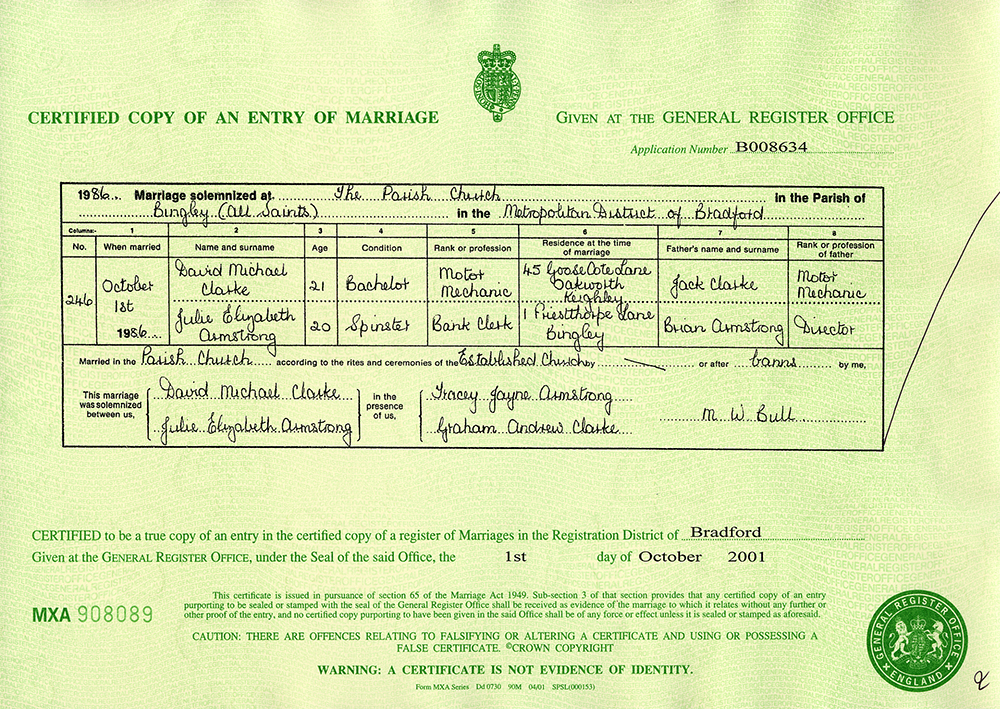 CERTIFIED COPY OF AN ENTRY OF MARRIAGE
GIVEN AT THE GENERAL REGISTER OFFICE
Application Number B008634
1986 Marriage solemnized at The Parish Church in the Parish of
Bingley (All Saints) in the Metropolitan District of Bradford
Columns:- 1 2 3 4 5 6 7 8
No. When married Name and surname Age Condition Rank or profession Residence at the time of marriage Father's name and surname Rank or profession of father
246 October 1st 1986
David Michael Clarke 21 Bachelor Motor Mechanic 45 Goose Cote Lane Oakworth Keighley Jack Clarke Motor Mechanic
Julie Elizabeth Armstrong 20 Spinster Bank Clerk 1 Priestthorpe Lane Bingley Brian Armstrong Director
Married in the Parish Church according to the rites and ceremonies of the Established Church by or after banns by me,
This marriage was solemnized between us,
David Michael Clarke
Julie Elizabeth Armstrong
in the presence of us,
Tracey Jayne Armstrong
Graham Andrew Clarke
M W Bull
CERTIFIED to be a true copy of an entry in the certified copy of a register of Marriages in the Registration District of Bradford
Given at the GENERAL REGISTER OFFICE, under the Seal of the said Office, the 1st day of October 2001
MXA 908089
This certificate is issued in pursuance of section 65 of the Marriage Act 1949. Sub-section 3 of that section provides that any certified copy of an entry
purporting to be sealed or stamped with the seal of the General Register Office shall be received as evidence of the marriage to which it relates without any further or
other proof of the entry, and no certified copy purporting to have been given in the said Office shall be of any force or effect unless it is sealed or stamped as aforesaid.
CAUTION: THERE ARE OFFENCES RELATING TO FALSIFYING OR ALTERING A CERTIFICATE AND USING OR POSSESSING A
FALSE CERTIFICATE. ©CROWN COPYRIGHT
WARNING: A CERTIFICATE IS NOT EVIDENCE OF IDENTITY.
Form MXA Series Dd 0730 90M 04/01 SPSL(000153)
GENERAL REGISTER OFFICE
ENGLAND